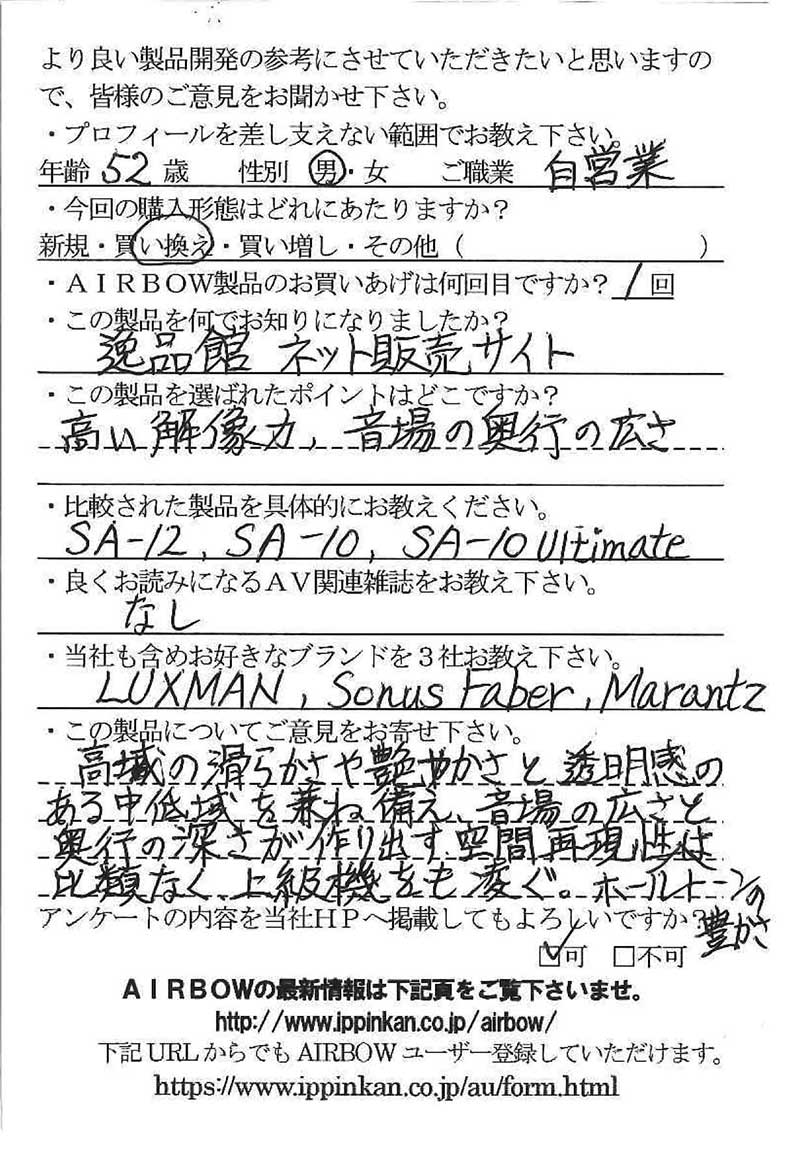 より良い製品開発の参考にさせていただきたいと思いますの
で、皆様のご意見をお聞かせ下さい。
・プロフィールを差し支えない範囲でお教え下さい。
年齢 52 歳 性別 男・女 ご職業 自営業
・今回の購入形態はどれにあたりますか？
新規・買い換え・買い増し・その他（ ）
・ＡＩＲＢＯＷ製品のお買いあげは何回目ですか？ 1 回
・この製品を何でお知りになりましたか？
逸品館 ネット販売サイト
・この製品を選ばれたポイントはどこですか？
高い解像力、音場の奥行の広さ
・比較された製品を具体的にお教えください。
SA-12, SA-10, SA-10 Ultimate
・良くお読みになるＡＶ関連雑誌をお教え下さい。
なし
・当社も含めお好きなブランドを３社お教え下さい。
LUXMAN, Sonus Faber, Marantz
・この製品についてご意見をお寄せ下さい。
高域の滑らかさや艶やかさと透明感の
ある中低域を兼ね備え、音場の広さと
奥行の深さが作り出す空間再現性は
比類なく、上級機をも凌ぐ。ホールトーンの
豊かさ
アンケートの内容を当社ＨＰへ掲載してもよろしいですか？
☑可 □不可
ＡＩＲＢＯＷの最新情報は下記頁をご覧下さいませ。
http://www.ippinkan.co.jp/airbow/
下記 URL からでも AIRBOW ユーザー登録していただけます。
https://www.ippinkan.co.jp/au/form.html